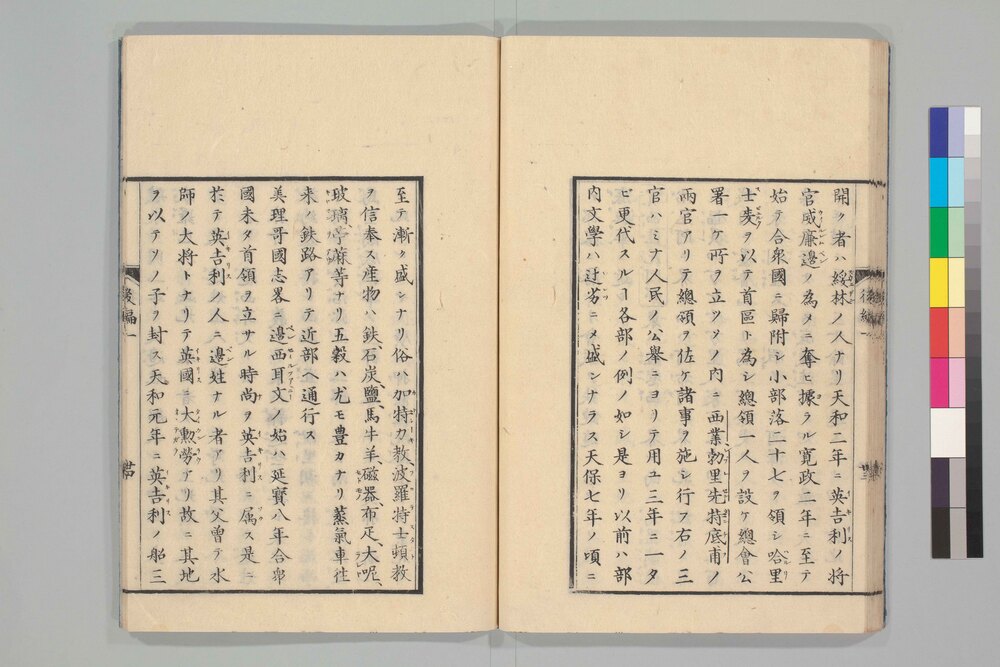 開ク者ハ綏林ノ人ナリ天和二年ニ英吉利ノ将
官威廉邊ノ為メニ奪ヒ據ラル寛政二年ニ至テ
始テ合衆國ニ歸附シ小部落二十七ヲ領シ哈里
士麦ヲ以テ首區ト為シ總領一人ヲ設ケ總會公
署一ケ所ヲ立ツソノ内ニ西業勃里先特底甫ノ
兩官アリテ總領ヲ佐ケ諸事ヲ施シ行フ右ノ三
官ハミナ人民ノ公舉ニヨリテ用ユ三年ニ一タ
ビ更代スルヿ各部ノ例ノ如シ是ヨリ以前ハ部
内文學ハ甚劣ニメ盛ンナラス天保七年ノ頃ニ
至テ漸ク盛シナリ俗ハ加特力教波羅特士頓教
ヲ信奉ス産物ハ鉄、石炭、鹽、馬牛羊、磁器、布疋、大呢、
玻璃、苧麻等ナリ五穀ハ尤モ豊カナリ蒸氣車徃
来ノ鉄路アリテ近部ヘ通行ス
美理哥國志畧ニ邊西耳文ノ始ハ延寳八年合衆
國未タ首領ヲ立サル時尚ヲ英吉利ニ属ス是ニ
於テ英吉利ノ人ニ邊姓ナル者アリ其父曾テ水
師ノ大将トナリテ英國ニ大勲労アリ故ニ其地
ヲ以テソノ子ヲ封ス天和元年ニ英吉利ノ船三
後編一